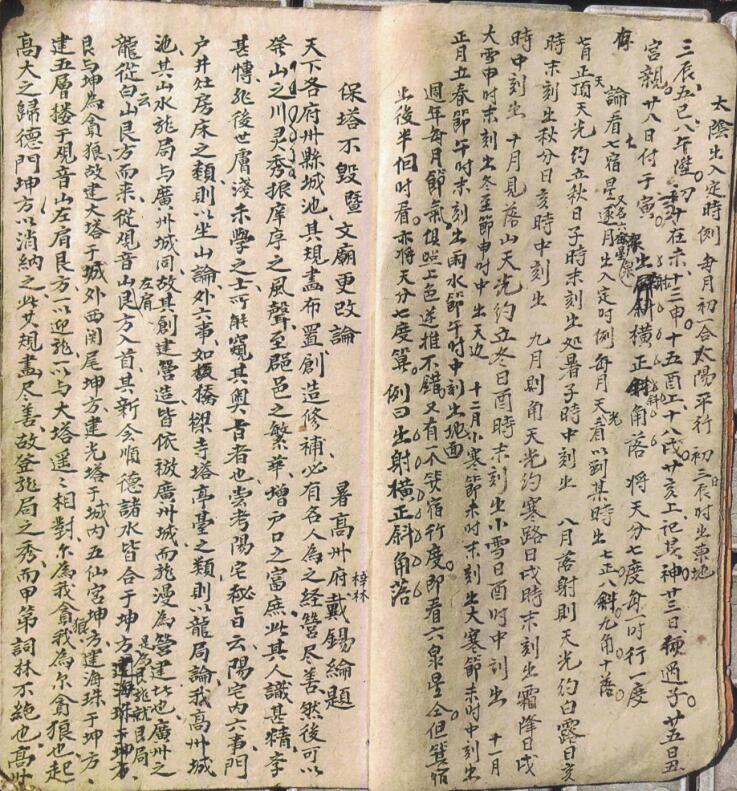 太陰出入定時例 每月初合太陽平行 初三日辰时出東地
三辰五巳八年陞 初十在未十三申 十五酉上十八戌 廿亥上记其神 廿三日頭過子 廿五日丑
宮親 廿八日付于寅
出射橫正斜角落 將天分七度每一时行一度
論看七宿星逐月出入定时例 每月天光看以到某時出 七正八斜九角十落
七月正頂天光 約立秋日子時末刻出 处暑子時中刻出 八月落射則天光 約白露日亥
時末刻出 秋分日亥時中刻出 九月則角天光 約寒露日戌時末刻出 霜降日戌
時中刻出 十月見落山天光 約立冬日酉時末刻出 小雪日酉时中刻出 十一月
大雪申时末刻出 冬至節申时中出天边 十二月小寒節未时末刻出 大寒節未时中刻出
正月立春節午时末刻出 雨水節午时中刻出地面
週年每月節氣俱照上色送推不錯 又有一不等宿行度即看六泉星仝但箕宿
出後半個时看 亦將天分七度算 例曰出射橫正斜角落
保塔不毀暨 文廟更改論
署高州府 梓林 戴錫綸題
天下各府州縣城池其規畫布置創造修補必有名人為之經營尽善然後可以
發山之川灵秀振庠序之風聲至郡邑之繁華增户口之富庶此其人識甚精學
甚博非後世膚淺末學之士可能窺其奧旨者也尝考陽宅秘旨云陽宅内六事門
户井灶房床之類則以坐山論外六事如坡橋樑寺塔亭臺之類則以龍局論我高州城
池其山水龍局与廣州城同故其創建營造皆依倣廣州城而非漫為營建此也廣州之
龍從白云山艮方而来從观音山左肩艮方入首其新会順德諸水皆合于坤方是為艮龍就艮局
艮与坤為貪狼故建大塔于城外西関尾坤方建光塔于城内五仙宮坤方建海珠于坤方
建五層搂于观音山左肩艮方以迎龍以与大塔遥遥相對尔為我貪我為尔貪狼也起
高大之歸德門坤方以消納之此其規畫尽善故登龍局之秀而甲第詞林不絶也高州